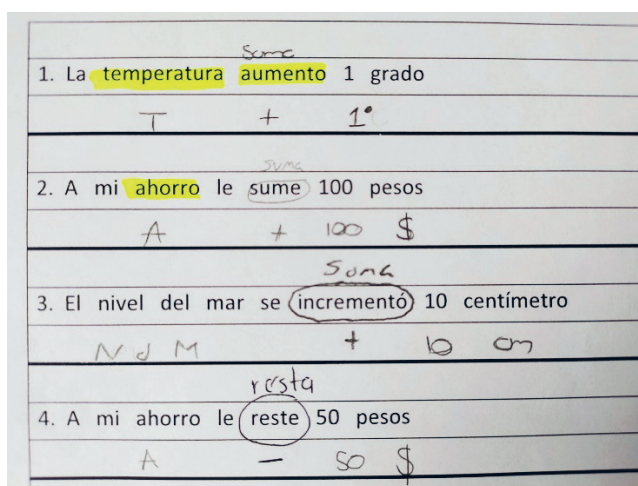 Suma
1. La temperatura aumento 1 grado
T + 1°
suma
2. A mi ahorro le sume 100 pesos
A + 100 $
Suma
3. El nivel del mar se incrementó 10 centímetro
N d M + 10 cm
resta
4. A mi ahorro le reste 50 pesos
A - 50 $